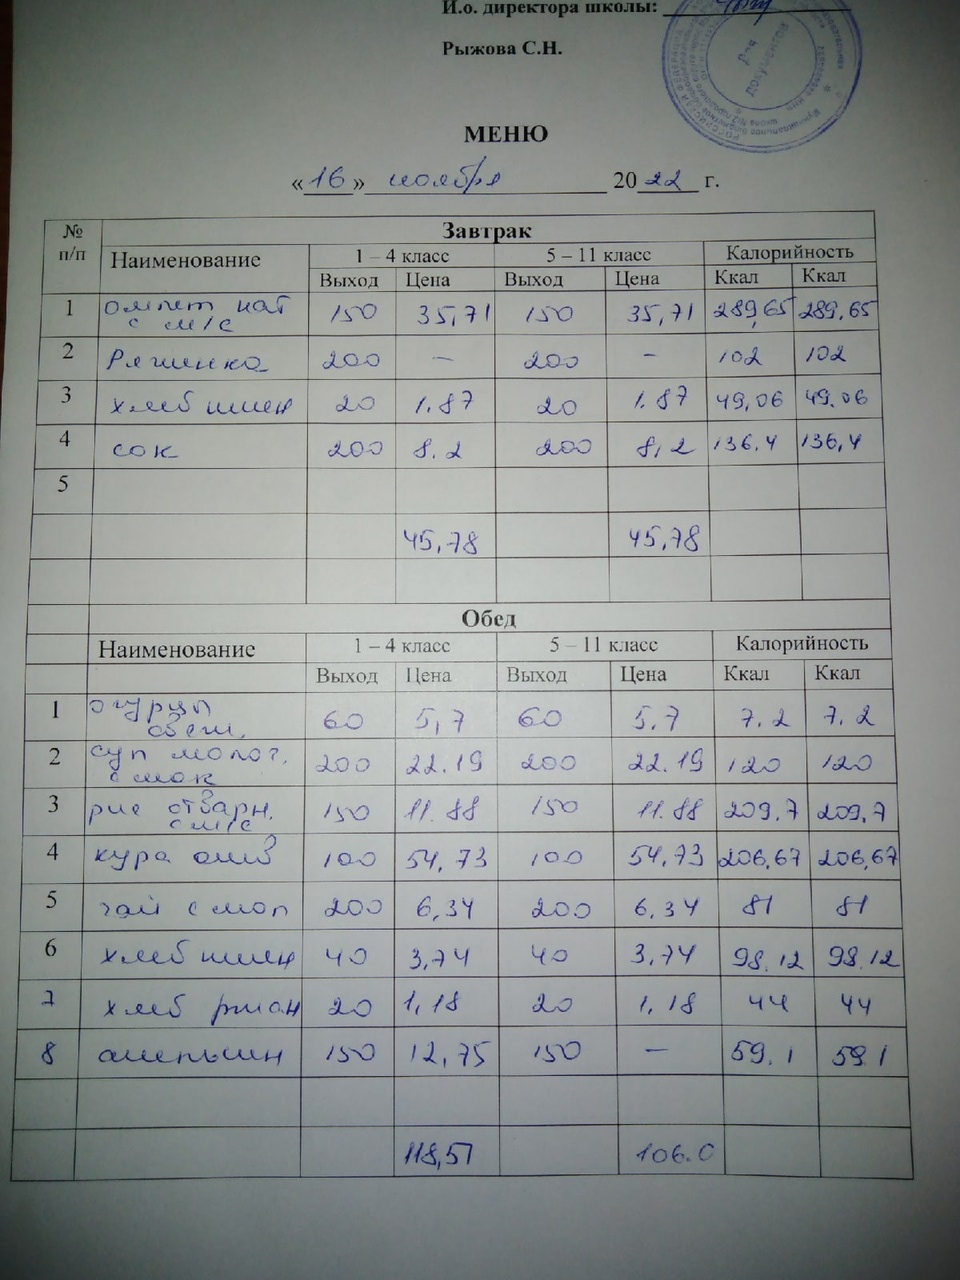 И.о. директора школы:
Рыжова С.Н.
для документов
МЕНЮ
«16» ноября 2022 г.
№ п/п Завтрак
Наименование 1 – 4 класс 5 – 11 класс Калорийность
Выход Цена Выход Цена Ккал Ккал
1 омлет нат с м/с 150 35,71 150 35,71 289,65 289,65
2 Ряженка 200 — 200 — 102 102
3 хлеб пшен 20 1.87 20 1.87 49,06 49.06
4 сок 200 8.2 200 8,2 136.4 136,4
5
45,78 45,78
Обед
Наименование 1 – 4 класс 5 – 11 класс Калорийность
Выход Цена Выход Цена Ккал Ккал
1 огурцы свеж. 60 5,7 60 5.7 7.2 7.2
2 суп молоч. с мак 200 22.19 200 22.19 120 120
3 рис отварн. с м/с 150 11.88 150 11.88 209.7 209,7
4 кура отв 100 54,73 100 54,73 206,67 206,67
5 чай с мол 200 6,34 200 6,34 81 81
6 хлеб пшен 40 3,74 40 3,74 98.12 98.12
7 хлеб ржан 20 1,18 20 1,18 44 44
8 апельсин 150 12,75 150 — 59.1 59.1
118,51 106.0